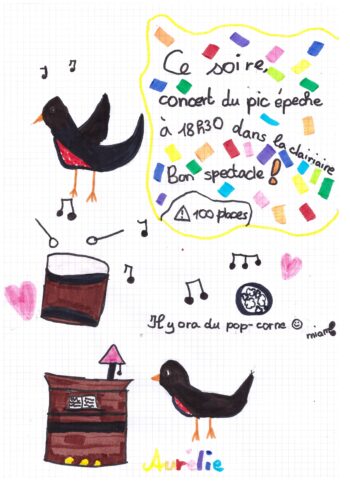 Ce soire,
concert du pic épeche
à 18h30 dans la clairiaire
Bon spectacle !
⚠ 100 places
Il y ora du pop-corne ☺ miam
Aurélie